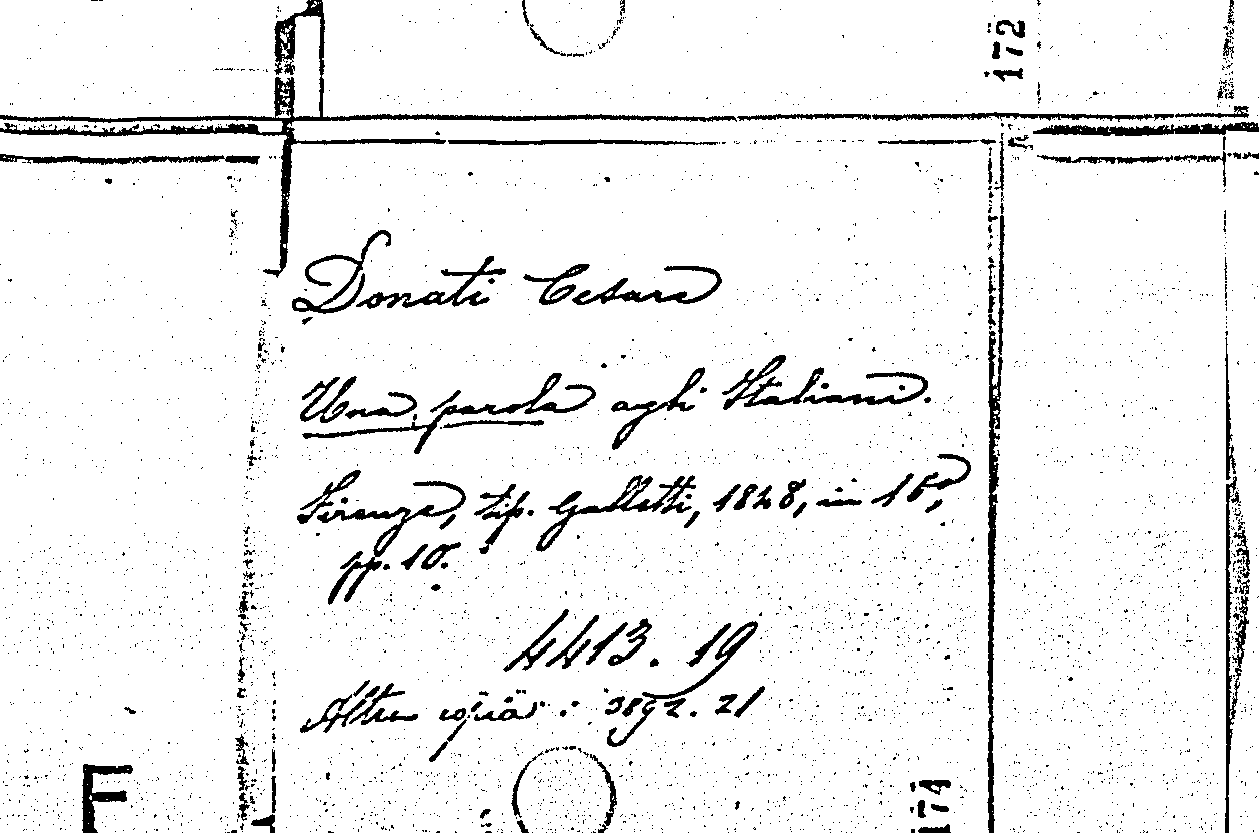 172
Donati Cesare
Una parola agli Italiani.
Firenze, tip. Galletti, 1848, in 16°,
pp. 10.
4413. 19
Altra copia: 3892. 21
F
174